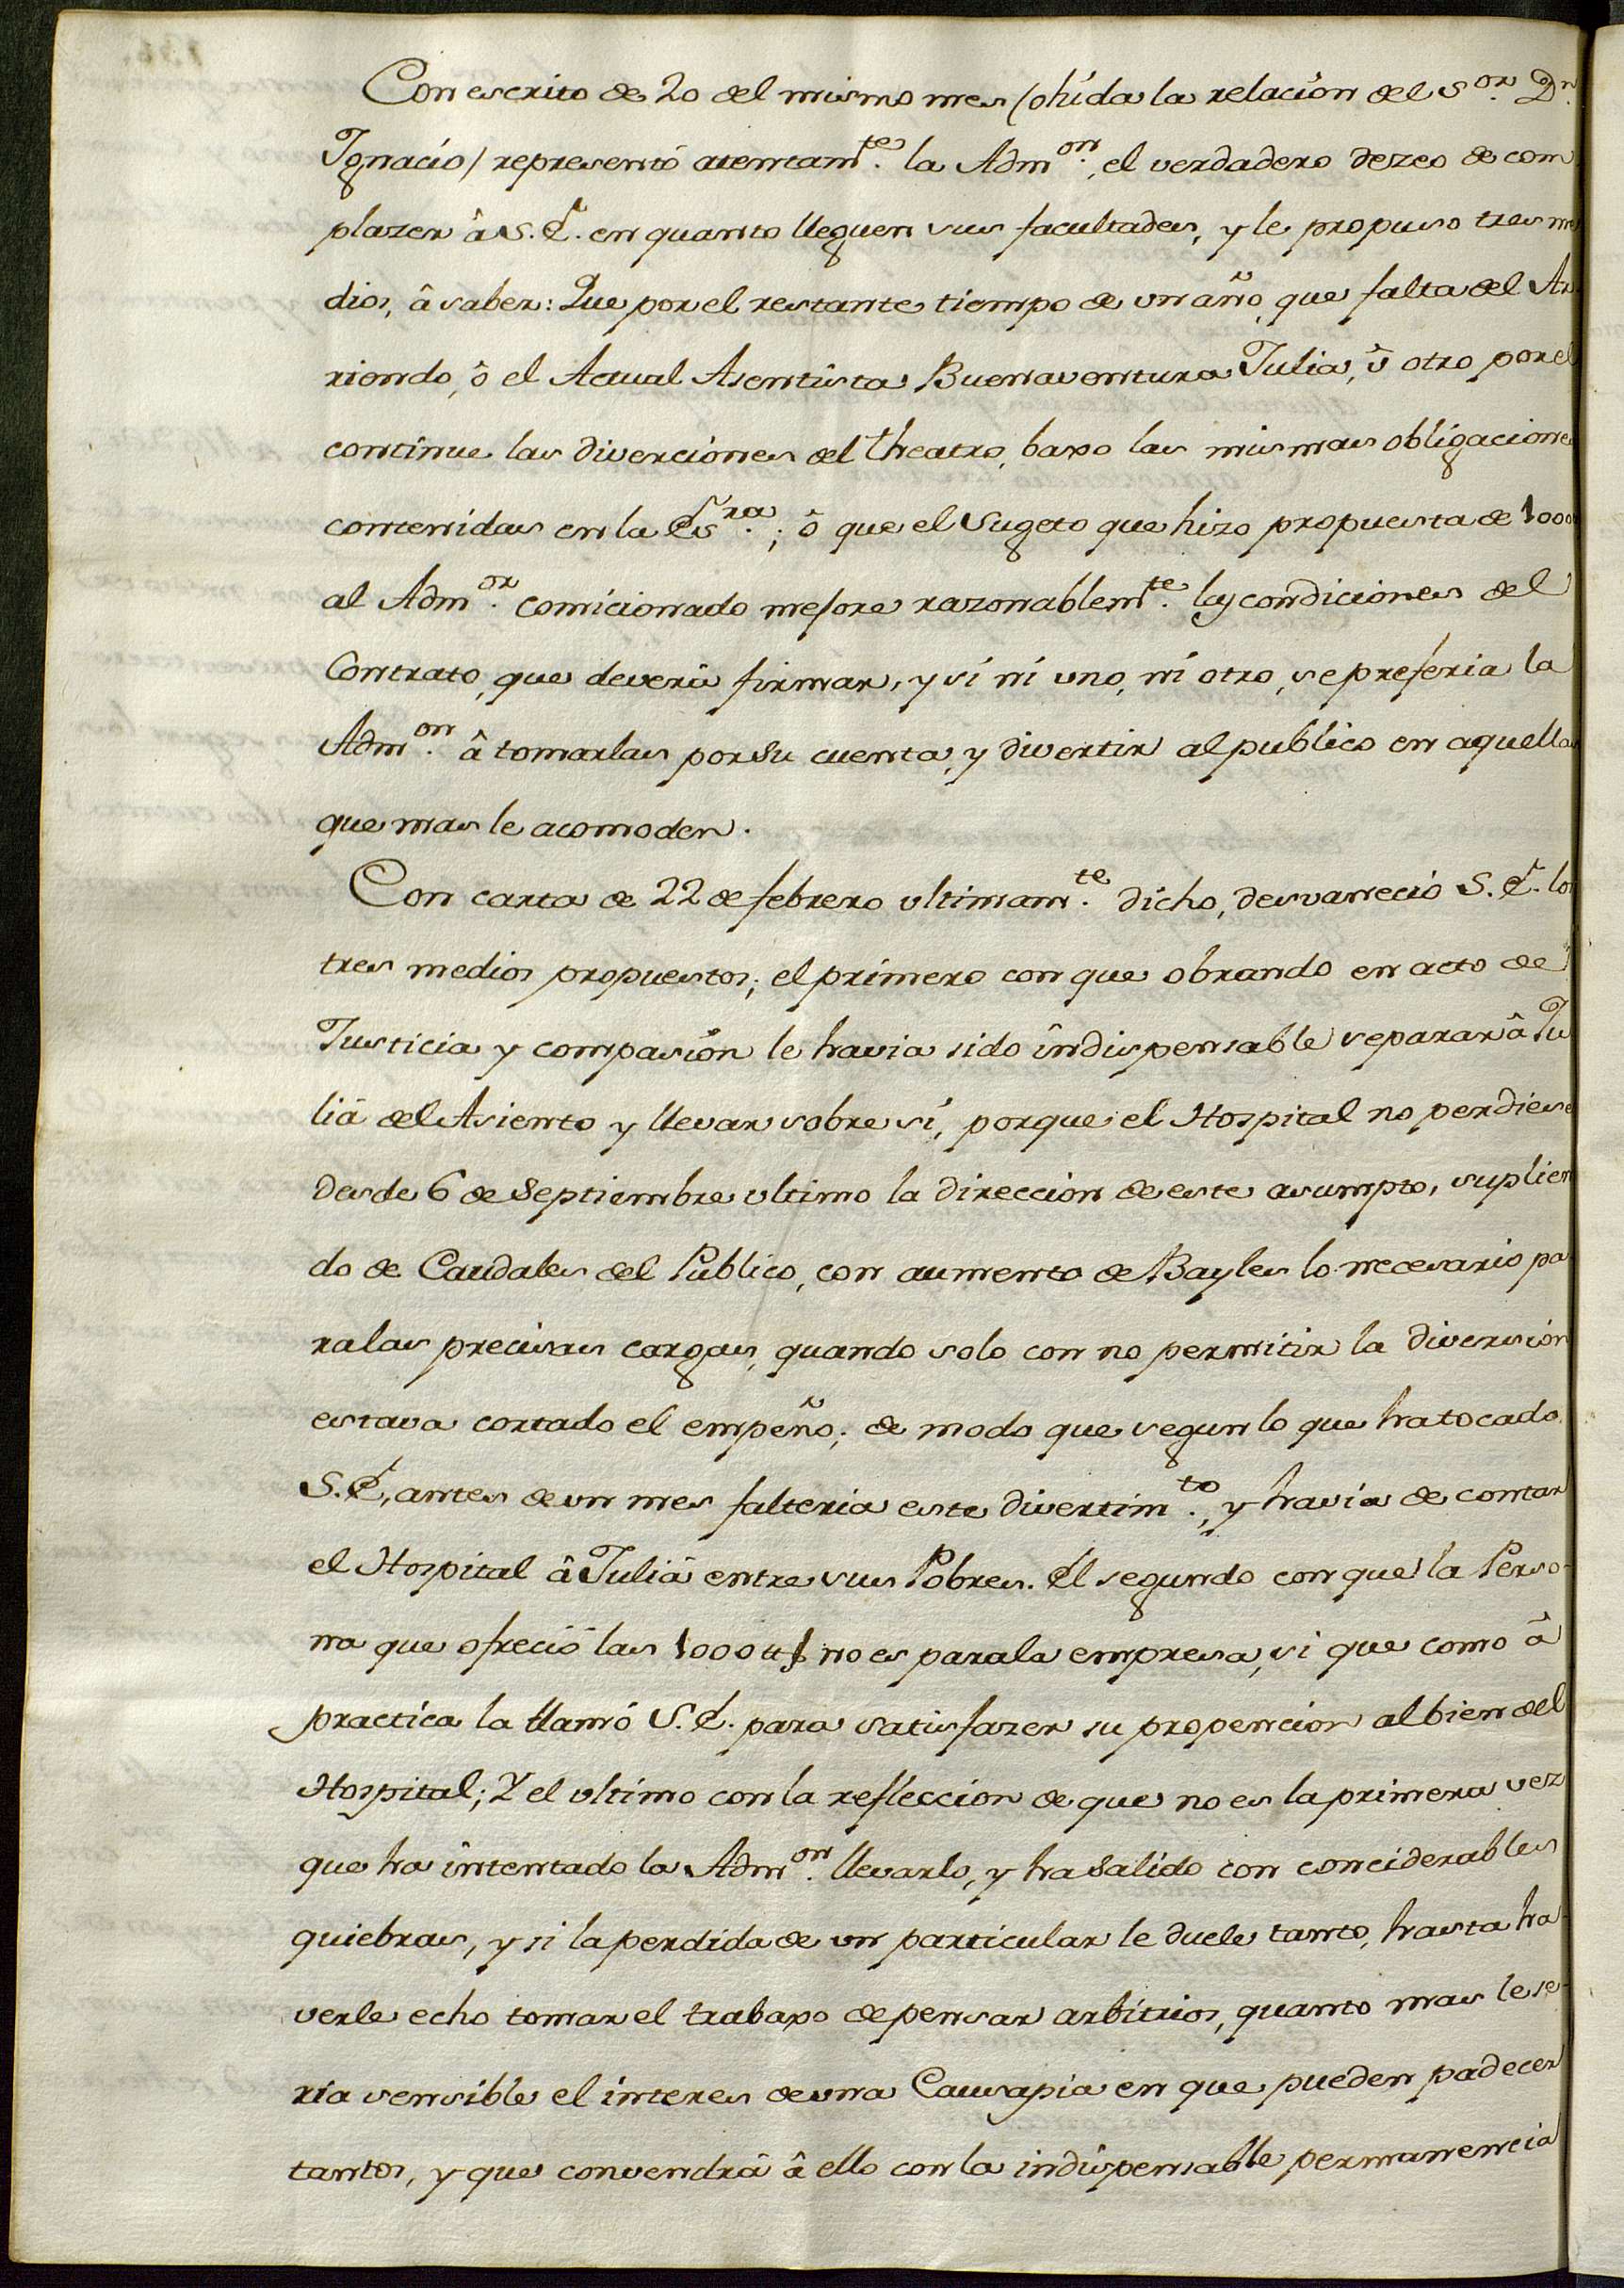 Con escrito de 20 del mismo mes (ohída la relación del S.or D.n
Ignacio) representó atentam.te la Adm.on, el verdadero dezeo de com
plazer â S. E. en quanto lleguen sus facultades, y le propuso tres me
dios, â saber: Que por el restante tiempo de un año, que falta del Ar
riendo, ô el Actual Asentista Buenaventura Juliâ, û otro por el
continue las diverciones del theatro, baxo las mismas obligaciones
contenidas en la Es.ra; ô que el Sugeto que hizo propuesta de 1000
al Adm.or comicionado mejore razonablem.te las condiciones del
Contrato, que deverâ firmar, y si ni uno, ni otro, se preferia la
Adm.on â tomarlas por su cuenta, y divertir al publico en aquellas
que mas le acomoden.
Con carta de 22 de febrero ultimam.te dicho, desvaneció S. E. los
tres medios propuestos; el primero con que obrando en acto de
Justicia y compasión le havia sido indispensable separar â Ju
liâ del Asiento y llevar sobre sí, porque el Hospital no perdiese
desde 6 de Septiembre ultimo la direccion de este asumpto, suplien
do de Caudales del Publico, con aumento de Bayles lo necesario pa
ra las precisas cargas, quando solo con no permitir la diversión
estava cortado el empeño; de modo que segun lo que ha tocado
S. E, antes de un mes falteria este divertim.to, y havia de contar
el Hospital â Juliâ entre sus Pobres. El segundo con que la Perso-
na que ofreció las 1000 ₶ no es para la empresa, si que como â
practica la llamó S. E. para satisfazer su propencion al bien del
Hospital; Y el ultimo con la refleccion de que no es la primera vez
que ha intentado la Adm.on llevarlo, y ha salido con conciderables
quiebras, y si la perdida de un particular le duele tanto, hasta ha-
verle echo tomar el trabaxo de pensar arbitrios, quanto mas le se-
ria sensible el interes de una Causa pia en que pueden padecer
tantos, y que convendrâ â ello con la indispensable permanencia